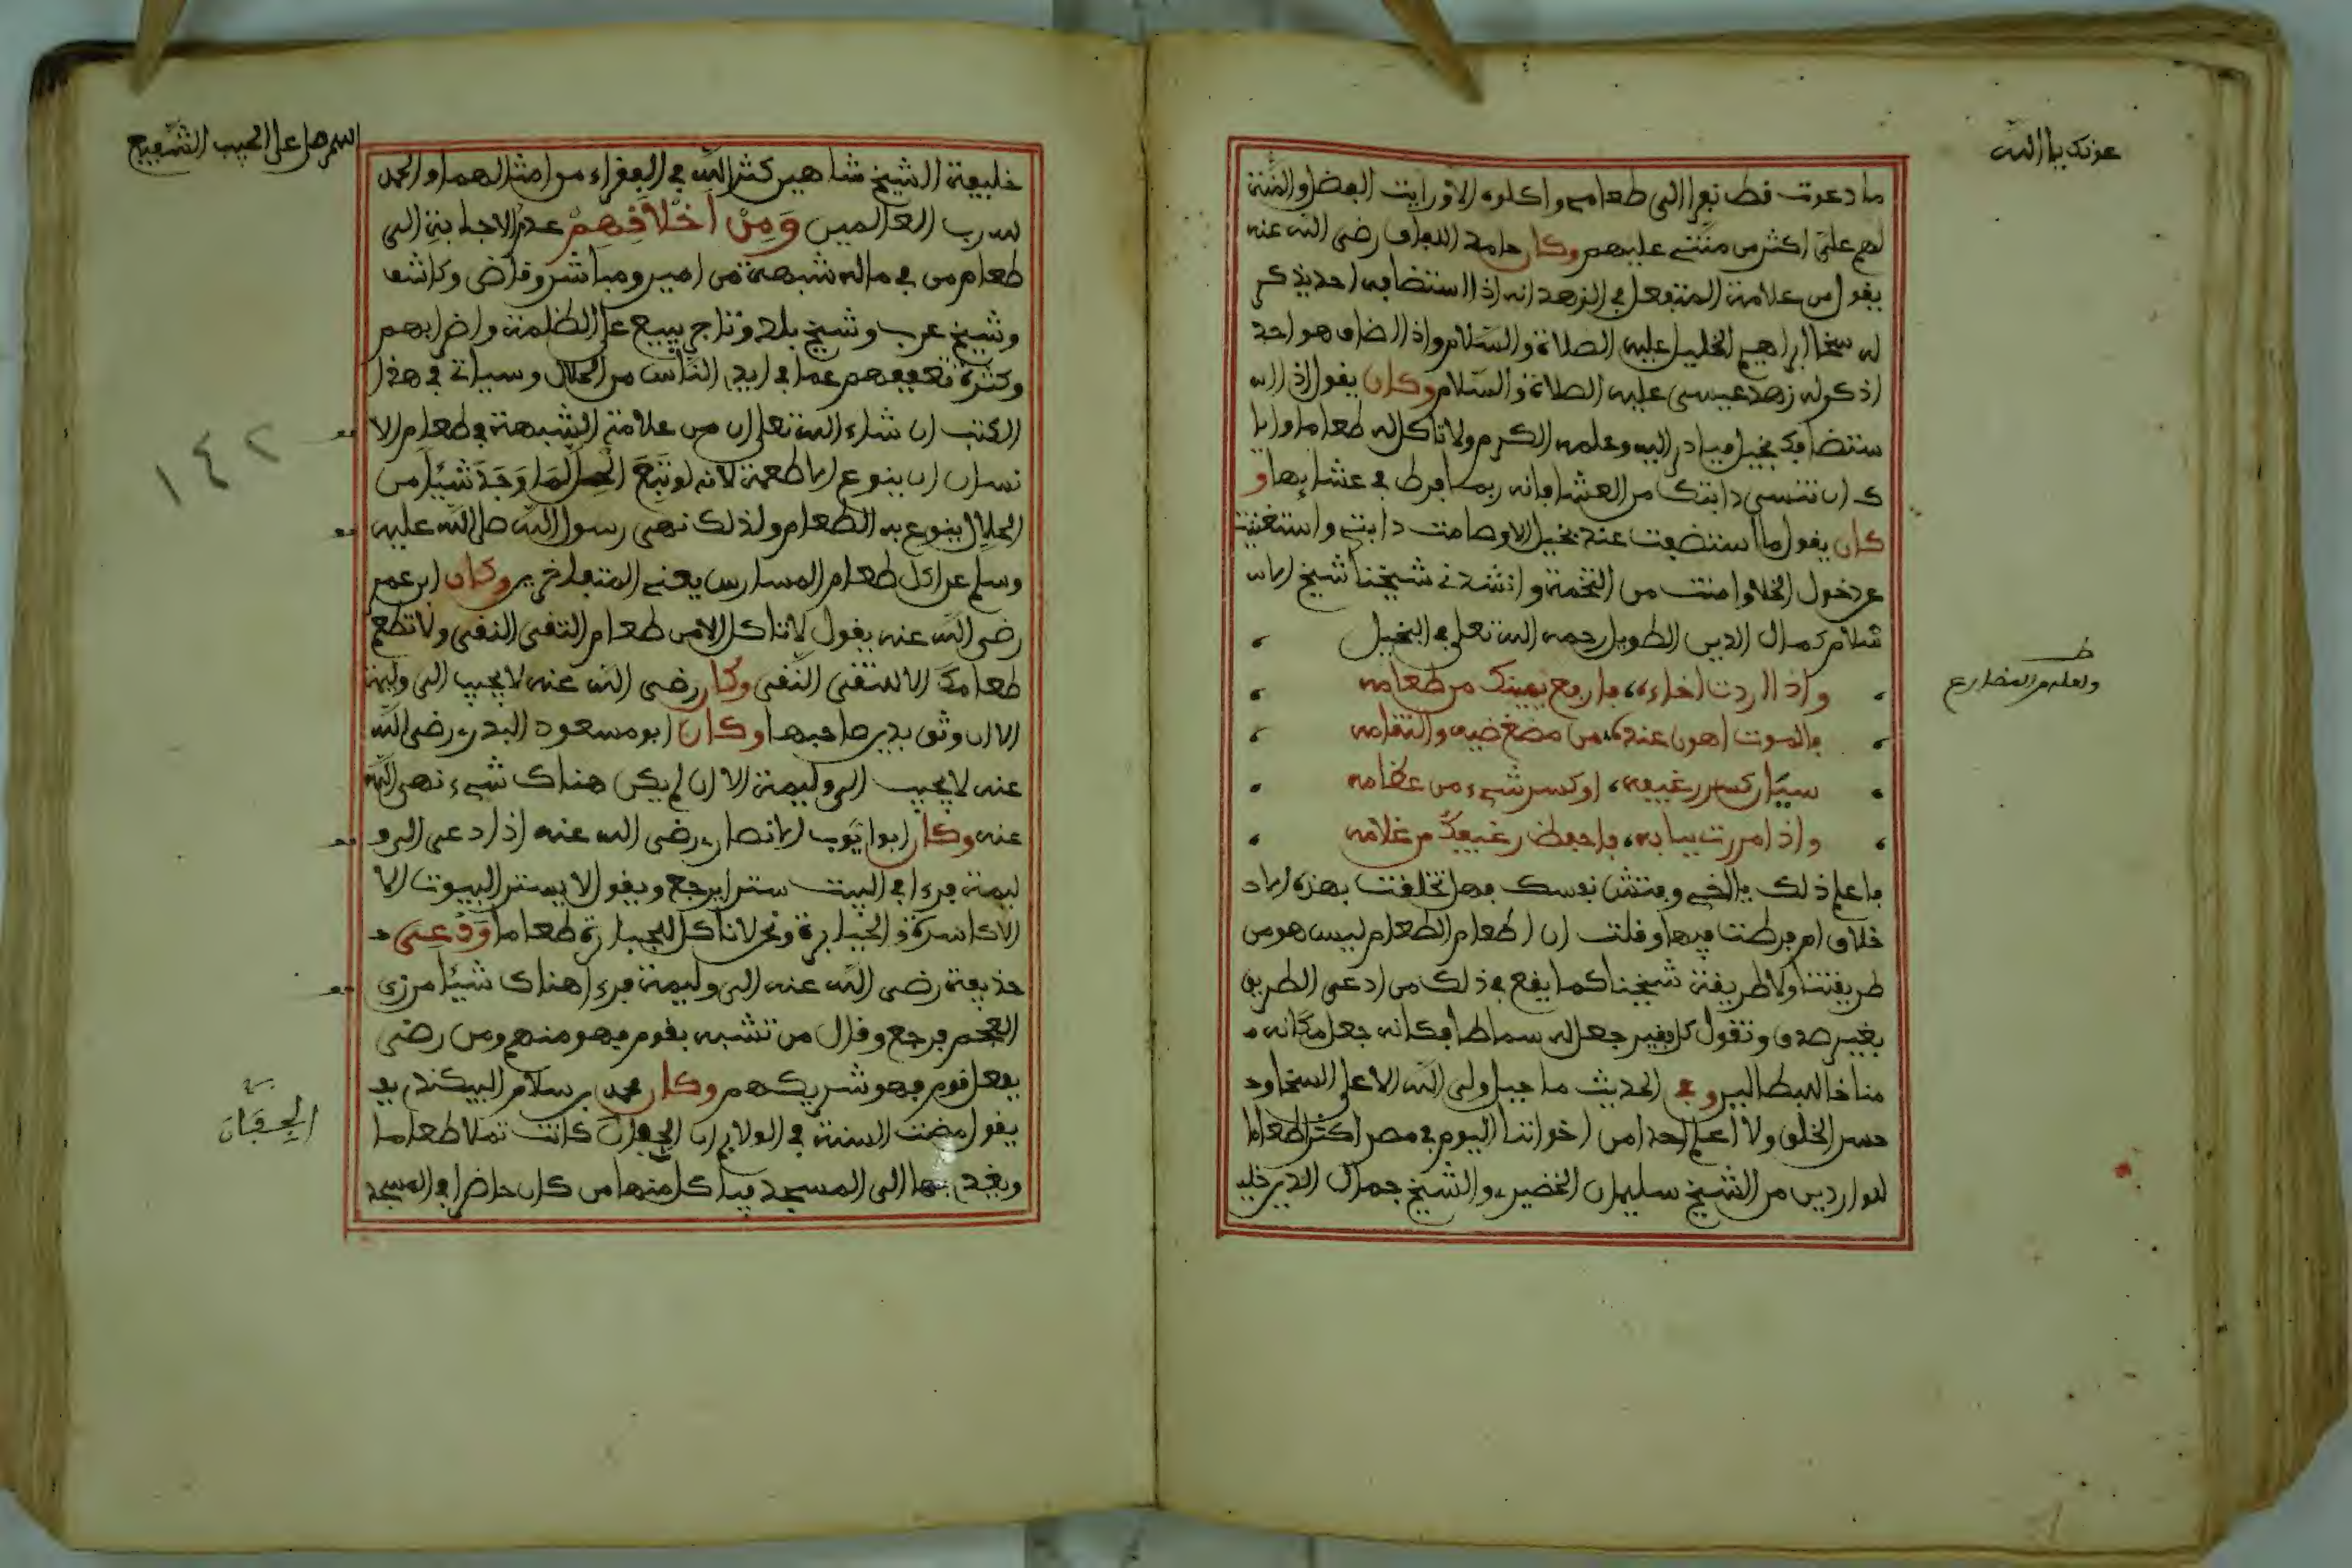 عونك يا الله
ما دعوت قط نفرا الى طعامي واكلوه الا ورايت الفضل والمنة
لهم علي اكثر من منتي عليهم وكان حامد اللفاف رضي الله عنه
يقول من علامة المتفعل في الزهد انه اذا استضافه احد يذكر
له سخا ابراهيم الخليل عليه الصلاة والسلام واذا اضاف هو احد
اذكر له زهد عيسى عليه الصلاة والسلام وكان يقول اذا ا
ستضافك بخيل فبادر اليه وعلمه الكرم ولا تاكل له طعاما وايا
ك ان تنسى دابتك من العشا فانه ربما فرط في عشايها و
كان يقول ما استضفت عند بخيل الا وصامت دابتي واستغنيت
عن دخول الخلا وامنت من التخمة وانشدني شيخنا شيخ الاس
سلام كمال الدين الطويل رحمه الله تعلى في البخيل
واذا اردت اخاءه، فارفع يمينك من طعامه
فالموت اهون عنده، من مضغ ضيف والتقامه
سيان كسر رغيفه، او كسر شيء من عظامه
واذا مررت ببابه، فاحفظ رغيفك من غلامه
ظ
ولعله من المضارع
فاعلم ذلك يا اخي وفتش نفسك فهل تخلقت بهذه الاد
خلاق ام فرطت فيها وقلت ان اطعام الطعام ليس هو من
طريقتنا ولا طريقة شيخنا كما يقع في ذلك من ادعى الطريق
بغير صدق وتقول كل فقير جعل له سماطا فكانه جعل مكانه
مناخا للبطالين وفي الحديث ما جبل ولي الله الا على السخا و
حسن الخلق ولا اعلم احدا من اخواننا اليوم في مصر اكثر اطعاما
للواردين من الشيخ سليمان الخضيري والشيخ جمال الدين خليـ
اللهم صل على الحبيب الشفيع
خليفة الشيخ شاهين كثر الله في الفقراء من امثالهما والحمد
لله رب العالمين وَمِنْ اَخْلَاقِهِمْ عدم الاجابة الى
طعام من في ماله شبهة من امير ومباشر وقاض وكاشف
وشيخ عرب وشيخ بلد وتاجر يبيع على الظلمة واضرابهم
وكثرة تعففهم عما في ايدي الناس من الحلال وسياتي في هذا
الكتب ان شاء الله تعلى ان من علامة الشبهة في طعام الا
نسان ان ينوع الاطعمة لانه لو تتبع الحل لما وجد شيئا من
الحلال ينوع به الطعام ولذلك نهى رسول الله صلى الله عليه
وسلم عن اكل طعام المتبارين يعني المتفاخرين وكان ابن عمر
رضي الله عنه يقول لا تاكل الا من طعام التقي النقي ولا تطعم
طعامك الا للتقي النقي وكان رضي الله عنه لا يجيب الى وليمة
الا ان وثق بدين صاحبها وكان ابو مسعود البدري رضي الله
عنه لا يجيب الى وليمة الا ان لم يكن هناك شيء نهى الله
عنه وكان ابو ايوب الانصاري رضي الله عنه اذا دعي الى و
ليمة فرءا في البيت سترا يرجع ويقول لا يستر البيوت الا
الاكاسرة والجبابرة ونحن لا ناكل للجبابرة طعاما وَدُعِيَ
حذيفة رضي الله عنه الى وليمة فرءا هناك شيئا من زي
العجم فرجع وقال من تشبه بقوم فهو منهم ومن رضي
بفعل قوم فهو شريكهم وكان محمد بن سلام البيكندي يقـ
يقول مضت السنة في الولايم ان الجفان كانت تملا طعاما
الجِفَان
ويغدى بها الى المسجد فياكل منها من كان حاضرا في المسجد
١٤٢